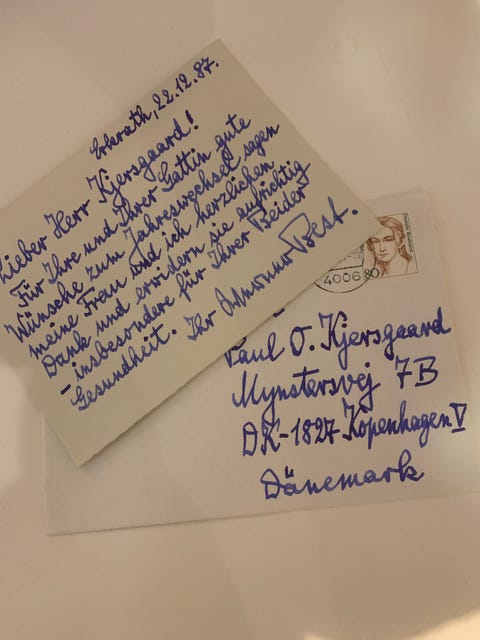 Erkrath, 22.12.87.
Lieber Herr Kjersgaard!
Für Ihre und Ihrer Gattin gute
Wünsche zum Jahreswechsel sagen
meine Frau und ich herzlichen
Dank und erwidern sie aufrichtig
- insbesondere für Ihrer Beider
Gesundheit. Ihr Best.
4006
80
Paul O. Kjersgaard
Mynstersvej 7B
DK-1827 Kopenhagen V
Dänemark